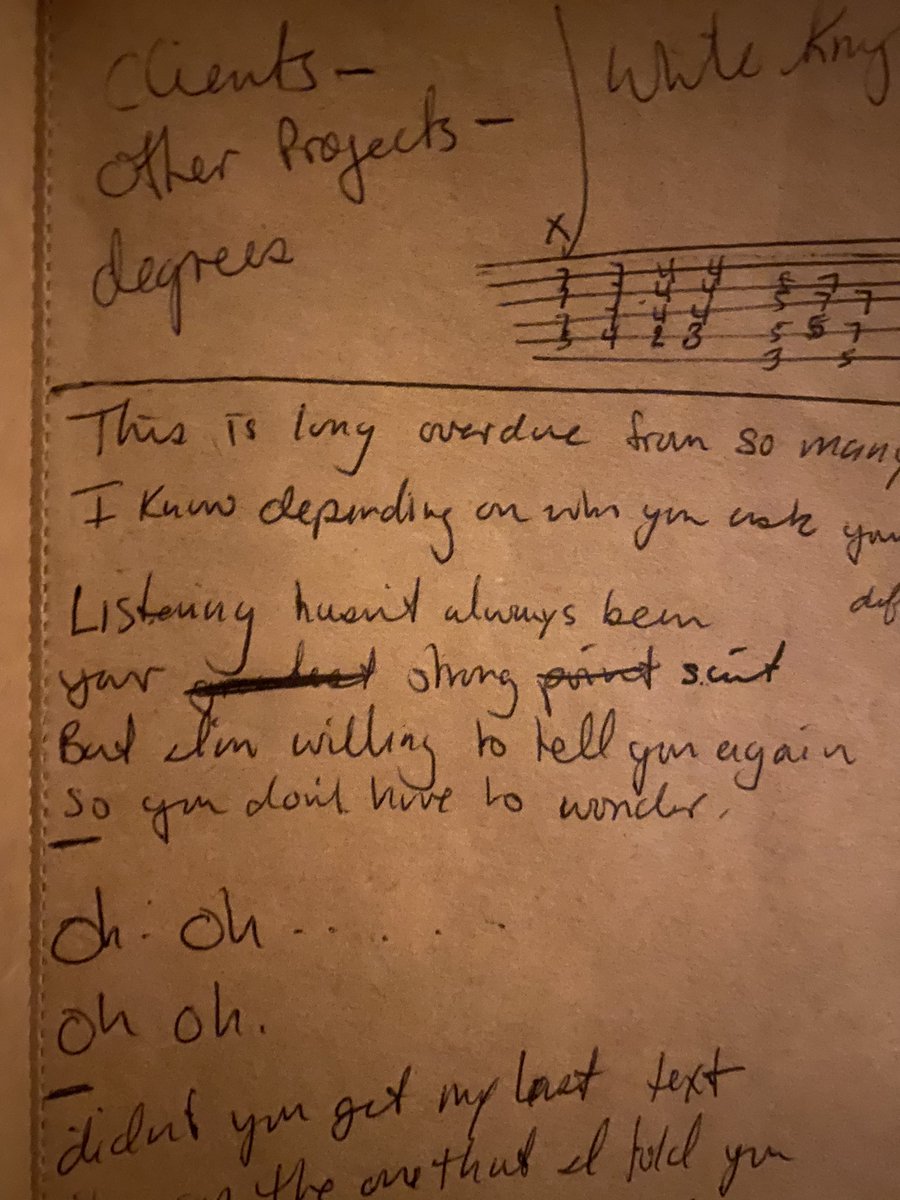 Clients -
Other Projects -
degrees
White
X
7 7 4 4 5 7
7 7 4 4 5 7 7
7 7 4 4
5 4 2 3 5 5 7
3 5
This is long overdue from so many
I know depending on who you ask
Listening hasn't always been
your strong point suit
But I'm willing to tell you again
so you don't have to wonder.
Oh. Oh.......
Oh oh.
didn't you get my last text
the one that I told you